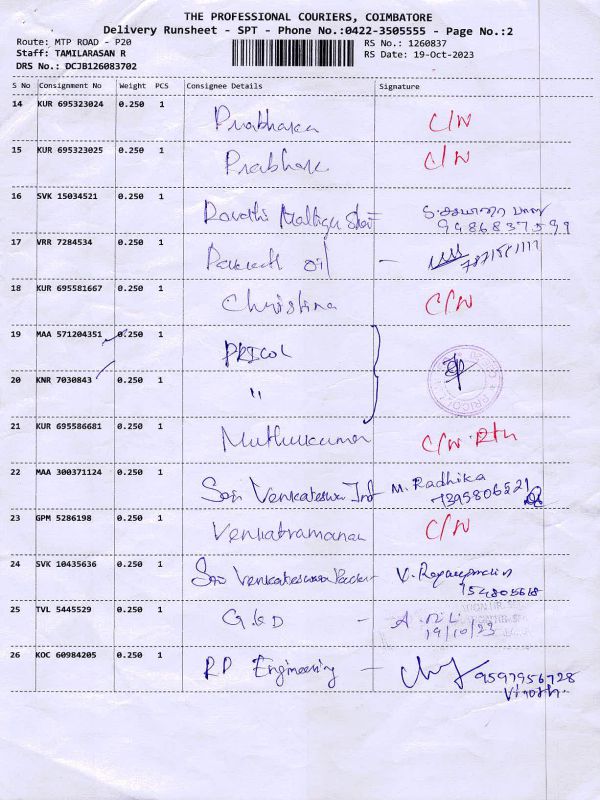 THE PROFESSIONAL COURIERS, COIMBATORE
Delivery Runsheet - SPT - Phone No.:0422-3505555 - Page No.:2
Route: MTP ROAD - P20
RS No.: 1260837
Staff: TAMILARASAN R
RS Date: 19-Oct-2023
DRS No.: DCJB126083702
S No Consignment No Weight PCS Consignee Details Signature
14 KUR 695323024 0.250 1 Prabhakar C/N
15 KUR 695323025 0.250 1 Prabhakar C/N
16 SVK 15034521 0.250 1
9486837599
17 VRR 7284534 0.250 1 oil -
18 KUR 695581667 0.250 1 Christina C/N
19 MAA 571204351 0.250 1 PRICOL
20 KNR 7030843 0.250 1 "
21 KUR 695586681 0.250 1 Muthukumar C/N. Rtn
22 MAA 300371124 0.250 1 Sri Venkateswara Ind M. Radhika
7395806521
23 GPM 5286198 0.250 1 Venkatramanan C/N
24 SVK 10435636 0.250 1 Sri Venkateswara
25 TVL 5445529 0.250 1 -
19/10/23
26 KOC 60984205 0.250 1 RP Engineering - 9597956728
Vinoth.